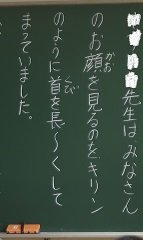 先生はみなさん
のお顔を見るのをキリン
のように首を長〜くして
まっていました。
かお
くび